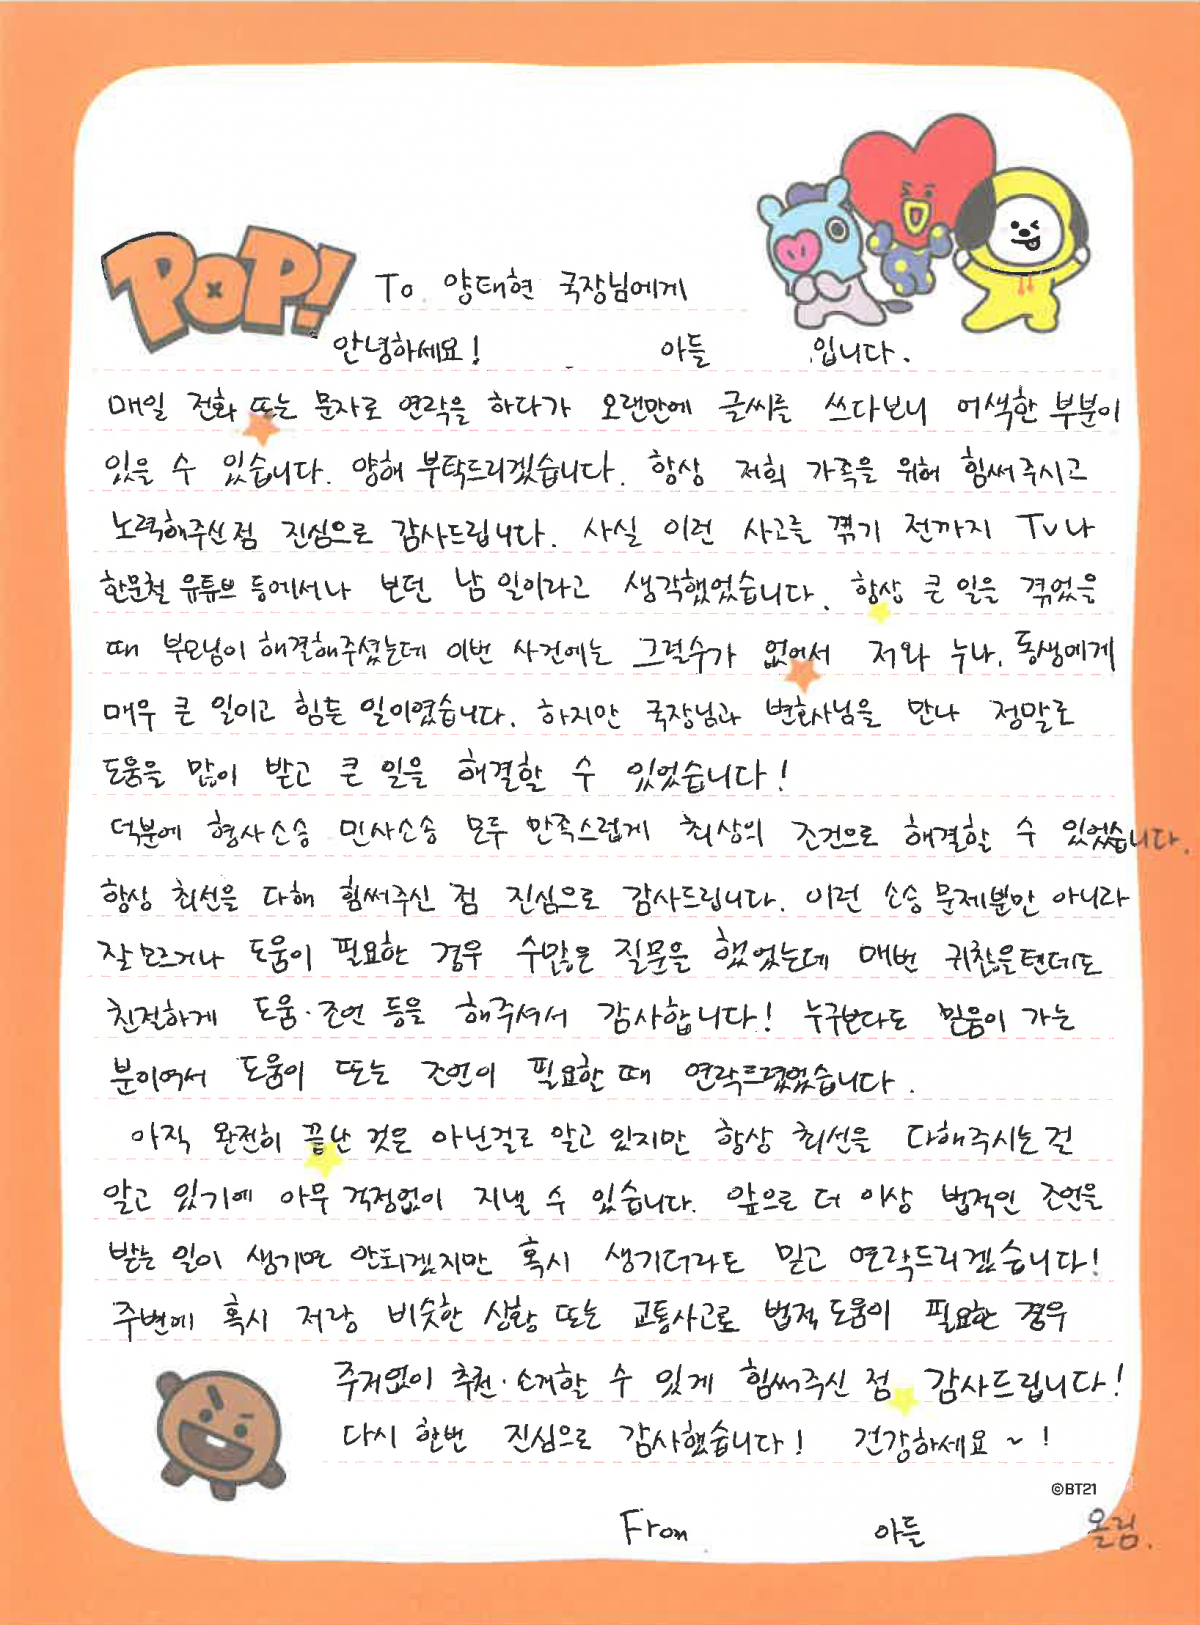 POP!
To. 양태현 국장님에게
안녕하세요! 아들 입니다.
매일 전화 또는 문자로 연락을 하다가 오랜만에 글씨를 쓰다보니 어색한 부분이
있을 수 있습니다. 양해 부탁드리겠습니다. 항상 저희 가족을 위해 힘써주시고
노력해주신점 진심으로 감사드립니다. 사실 이런 사고를 겪기 전까지 TV나
한문철 유튜브 등에서나 보던 남 일이라고 생각했었습니다. 항상 큰 일을 겪었을
때 부모님이 해결해주셨는데 이번 사건에는 그럴수가 없어서 저와 누나, 동생에게
매우 큰 일이고 힘든 일이였습니다. 하지만 국장님과 변호사님을 만나 정말로
도움을 많이 받고 큰 일을 해결할 수 있었습니다!
덕분에 형사소송 민사소송 모두 만족스럽게 최상의 조건으로 해결할 수 있었습니다.
항상 최선을 다해 힘써주신 점 진심으로 감사드립니다. 이런 소송 문제뿐만 아니라
잘모르거나 도움이 필요한 경우 수많은 질문을 했었는데 매번 귀찮을텐데도
친절하게 도움·조언 등을 해주셔서 감사합니다! 누구보다도 믿음이 가는
분이여서 도움이 또는 조언이 필요할 때 연락드렸었습니다.
아직 완전히 끝난 것은 아닌걸로 알고 있지만 항상 최선을 다해주시는 걸
알고 있기에 아무 걱정없이 지낼 수 있습니다. 앞으로 더 이상 법적인 조언을
받는 일이 생기면 안되겠지만 혹시 생기더라도 믿고 연락드리겠습니다!
주변에 혹시 저랑 비슷한 상황 또는 교통사고로 법적 도움이 필요한 경우
주저없이 추천·소개할 수 있게 힘써주신 점 감사드립니다!
다시 한번 진심으로 감사했습니다! 건강하세요~!
©BT21
From 아들 올림.